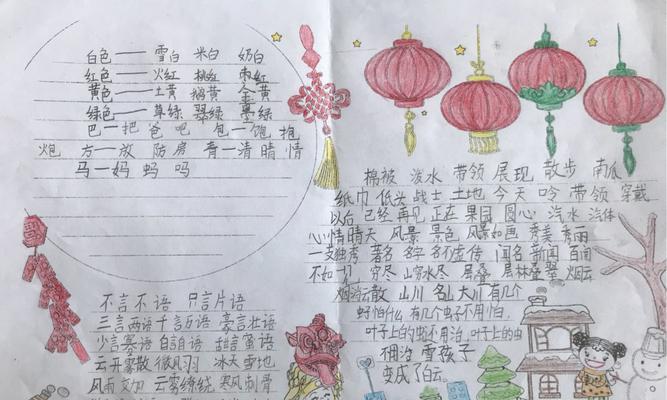 白色——雪白 米白 奶白
红色——火红 桃红 枣红
黄色——土黄 鹅黄 金黄
绿色——草绿 翠绿 墨绿
巴—把 爸 吧 包—饱 抱
炮 方—放 防 房 青—清 晴 情
马—妈 蚂 吗
不言不语 只言片语
三言两语 千言万语 豪言壮语
少言寡语 自言自语
云开雾散 微风 冰天雪地
风雨交加 云雾缭绕 寒风刺骨
棉被 泼水 带领 展现 散步 南瓜
纸巾 低头 战士 土地 今天 吟 带领 穿戴
以后 已经 再见 正在 果园 圆心 汽水 汽体
心情 晴天 风景 景色 风景如画 秀美 秀丽
一支独秀 著名 名字 名不虚传 闻名 新闻 百闻
不如一切 穷尽 山穷水尽 层叠 层林叠翠 烟云
烟消云散 山川 名山大川 有几个
虫子怕什么 有几个虫子不用怕
叶子上的虫不用治 叶子上的虫
用治 雪孩子
变成了白云